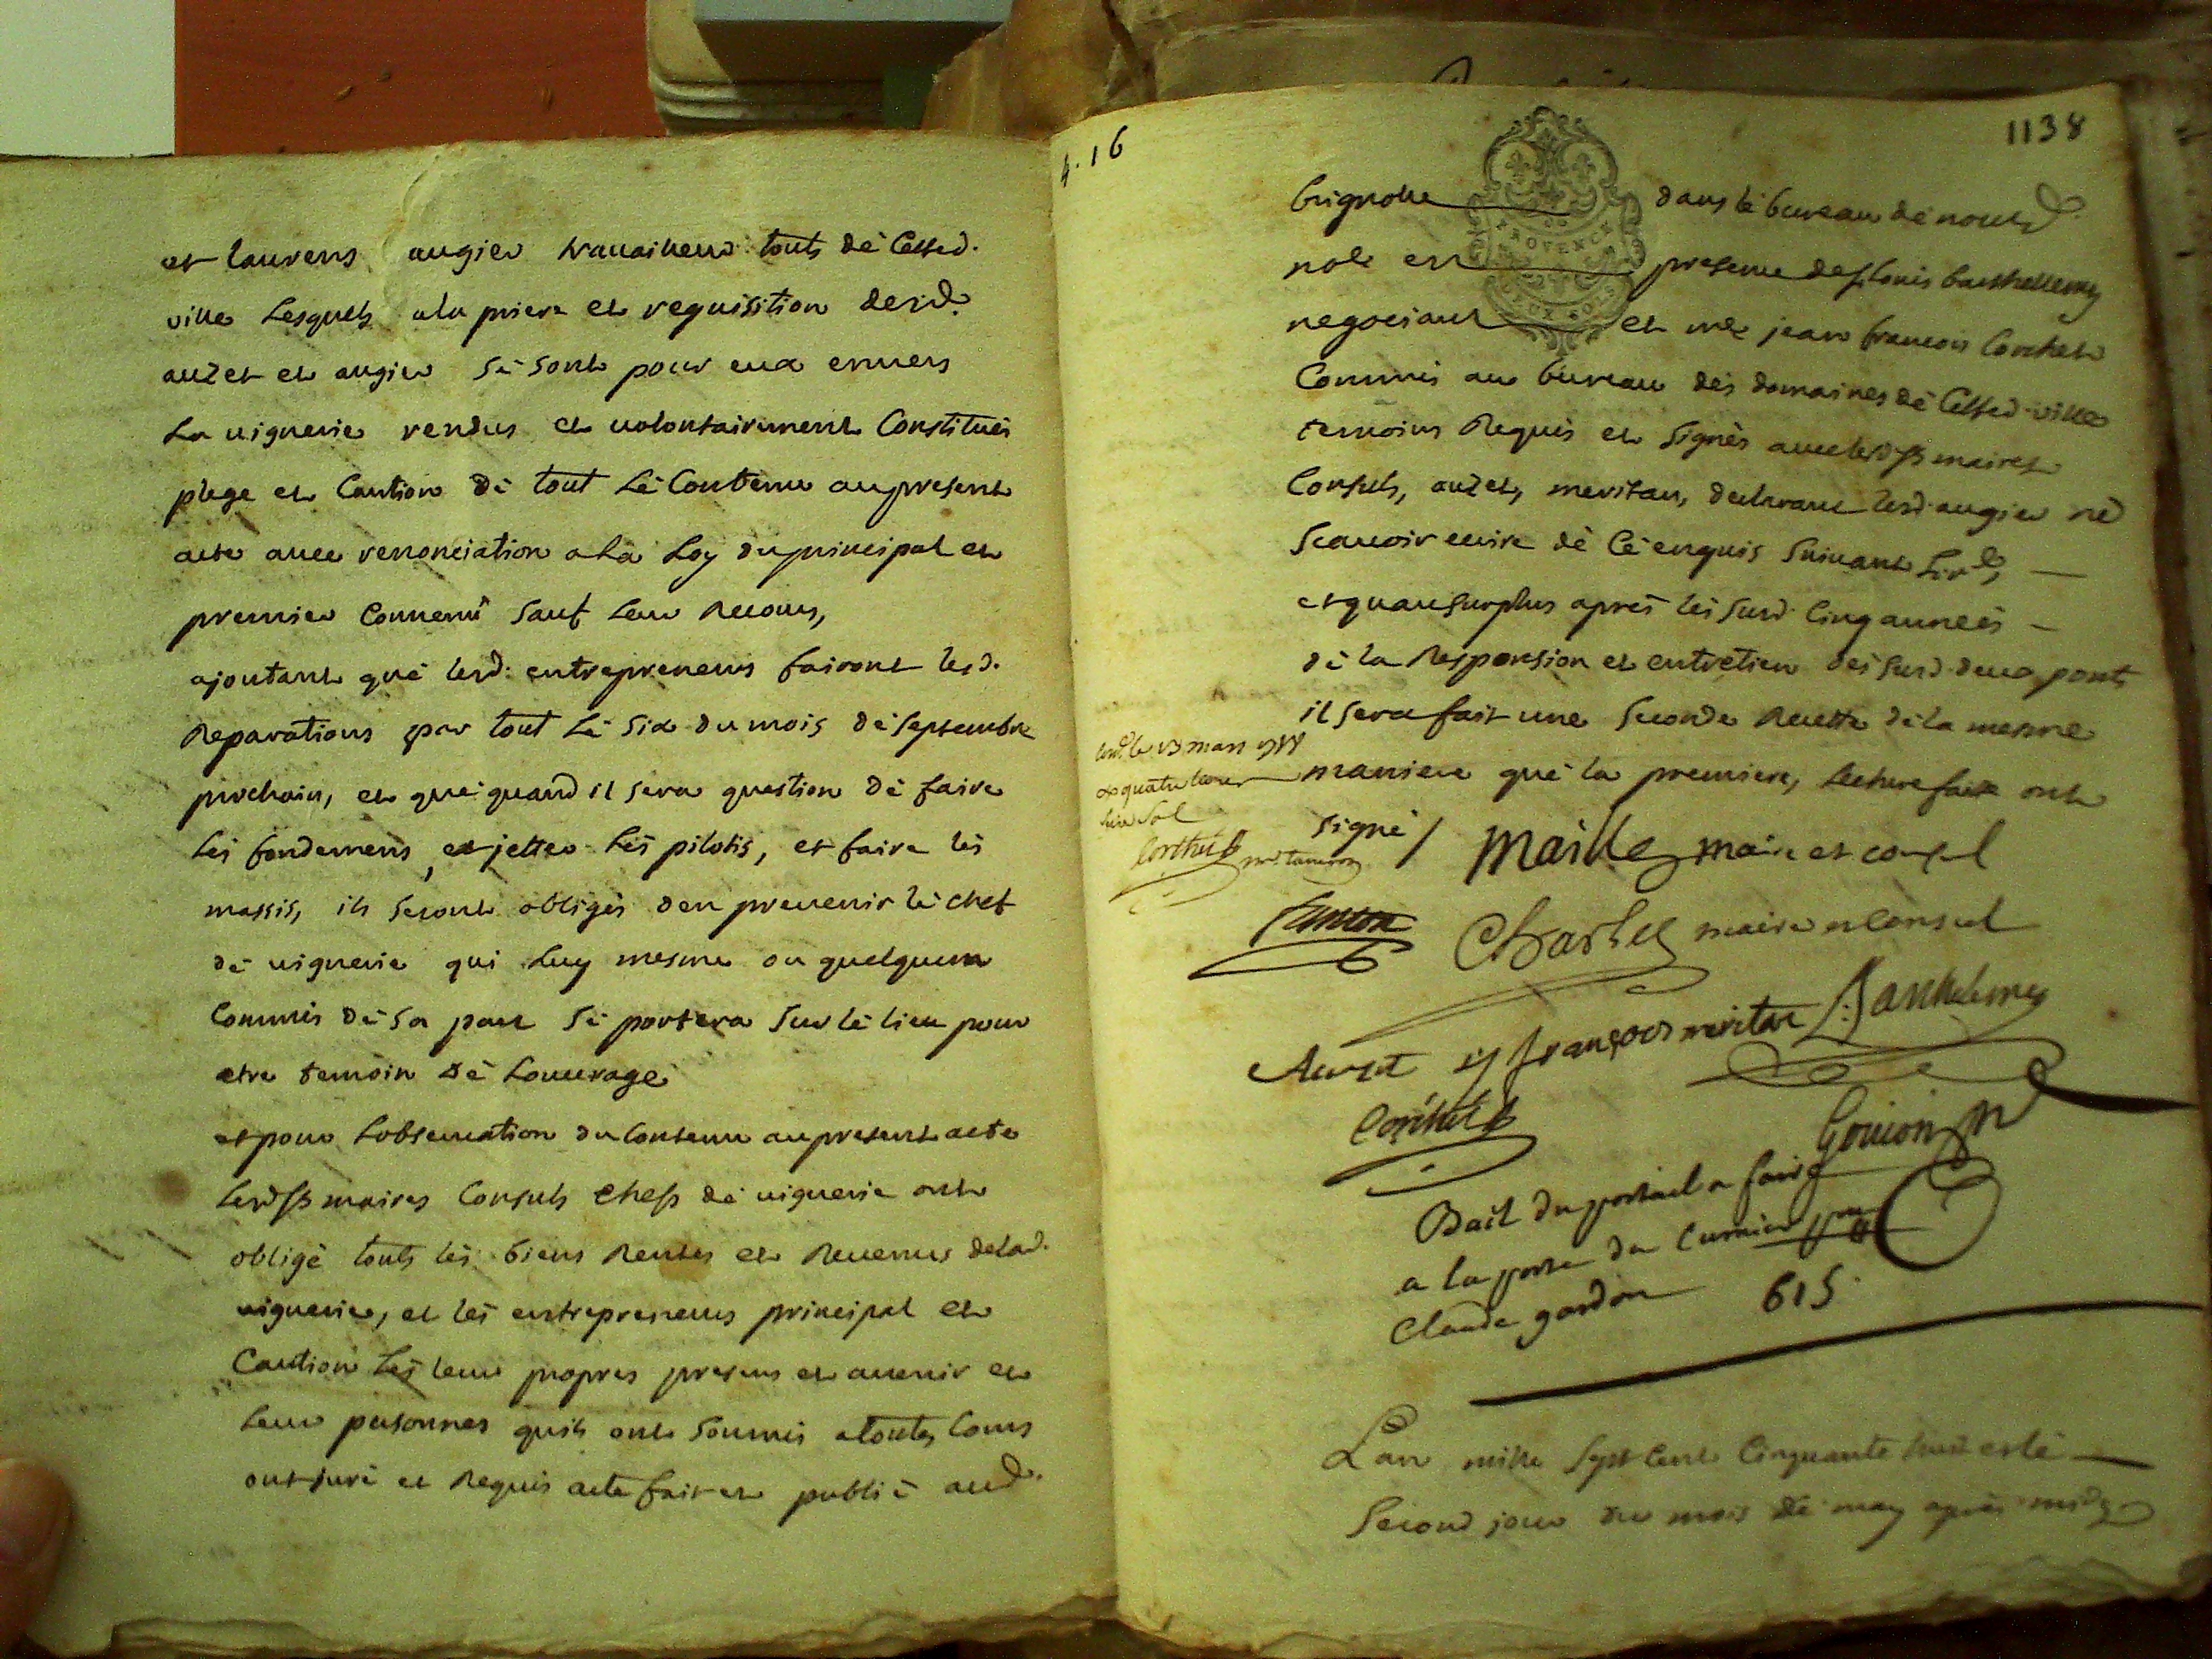 et laurens augier travailleur touts dé Cetted.
ville Lesquels a la priere et requisition desd.
auzet et augier sé sont pour eux envers
La viguerie rendus et volontairement Constitués
plege et Caution dé tout Lé Contenu au present
acte avec renonciation a La Loy du principal et
premier Convenu sauf Leur Recours,
ajoutant qué lesd. entrepreneurs fairont lesd.
Reparations par tout Lé six du mois dé septembre
prochain, et qué quand il sera question dé faire
Les fondemens, et jetter Lés pilotis, et faire lés
massis, ils seront obligés d'en prevenir lé chef
dé viguerie qui Luy mesme ou quelquun
Commis dé sa part sé portera sur lé lieu pour
etre temoin dé Louvrage
et pour Lobservation du Contenu au present acte
Lesd. srs maires Consuls chefs dé viguerie ont
obligé touts lés biens Rentes et Revenus de lad.
viguerie, et lés entrepreneurs principal et
Caution Lés leurs propres presens et avenir et
Leurs personnes quils ont soumis a toutes Cours
ont juré et Requis acte fait et publié aud.
4.16
1138
PROVENCE
DEUX SOLS
brignolle dans lé bureau dé nousd.
nore en presence de sr. louis barthellemy
negociant et me jean francois Corthet
Commis au bureau dés domaines dé Cetted. ville
temoins Requis et signés avec lesd. srs maires
Consuls, auzet, meritan, declarant led. augier né
scavoir ecrire dé cé enquis suivant Lord.
et quau surplus aprés lés susd. Cinq années
dé la Responsion et entretien dés susd. deux ponts
il sera fait une seconde Recette dé la mesme
maniere qué la premiere, Lecture faite ont
signé / maille maire et consul
Cont. le 13 mars
Corthet
Charles maire et Consul
Auzet françois meritan L. Barthelemy
Corthet
Goujon
Bail du portail a faire
a la porte du
Claude gardon 615
Lan mille sept Cent Cinquante huit et lé
second jour du mois dé may aprés midy